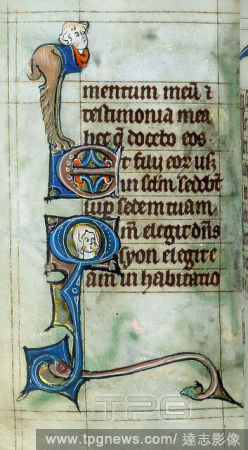 mentum meū ⁊
testimonia mea
hec q̄ docebo eos
Et filij eoꝝ usq;
in sclm̄ sedebt̄
sup sedem tuam
Qm̄ elegit dn̄s
syon elegit e
am in habitatio
TPG
www.tpgnews.com/達志影像